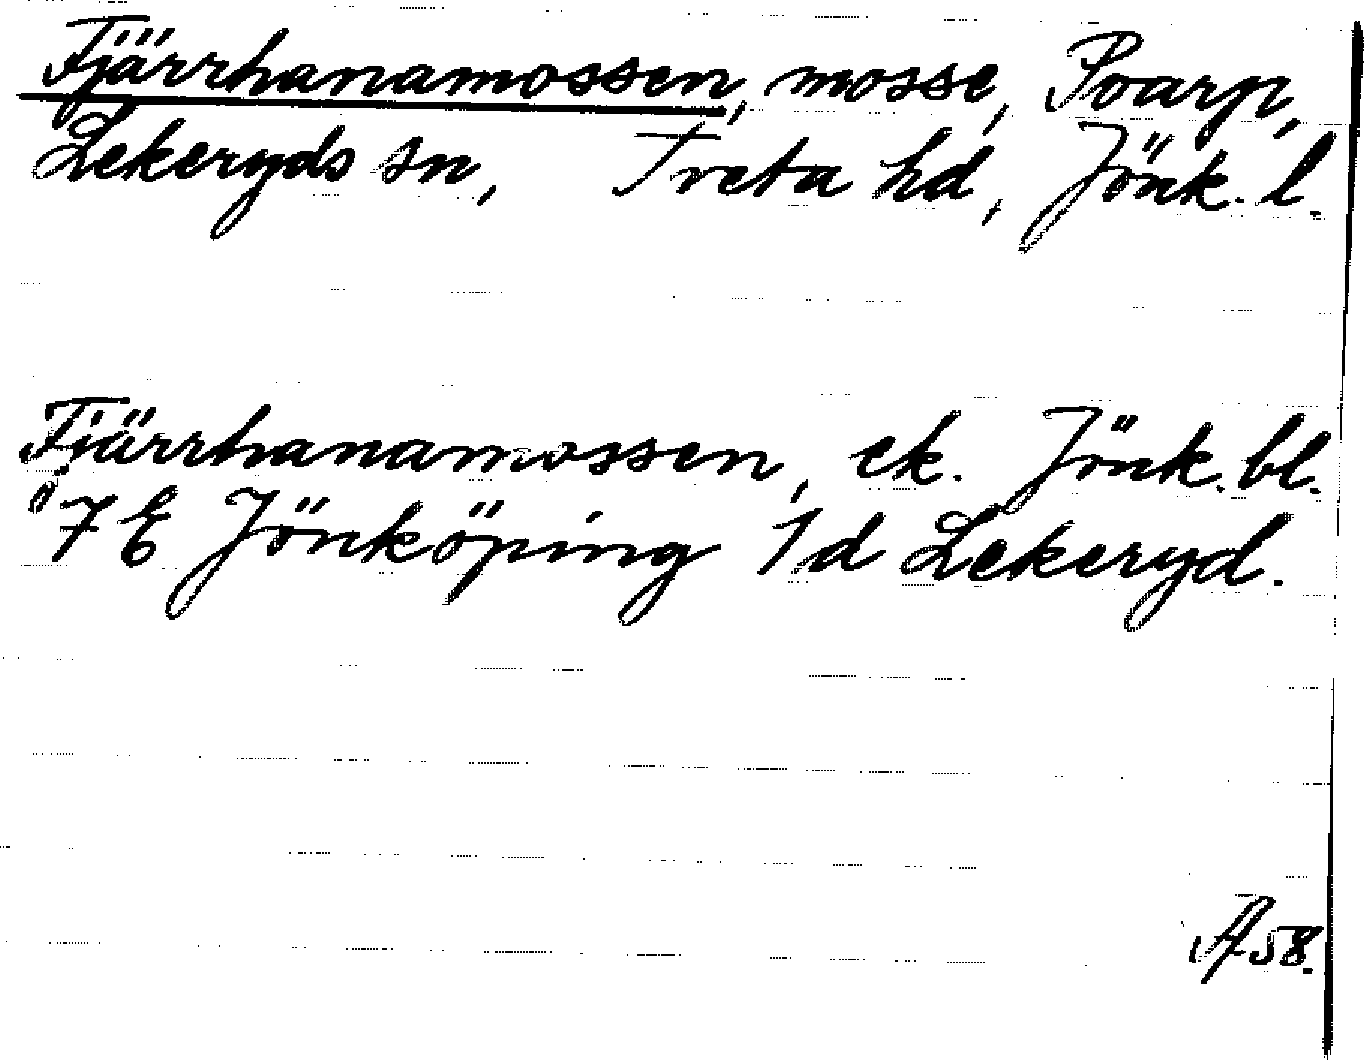 Fjärrhanamossen, mosse, Poarp,
Lekeryds sn, Tveta hd, Jönk. l.
Fjärrhanamossen, ek. Jönk. bl.
"7 E Jönköping 1d Lekeryd.
A 58.